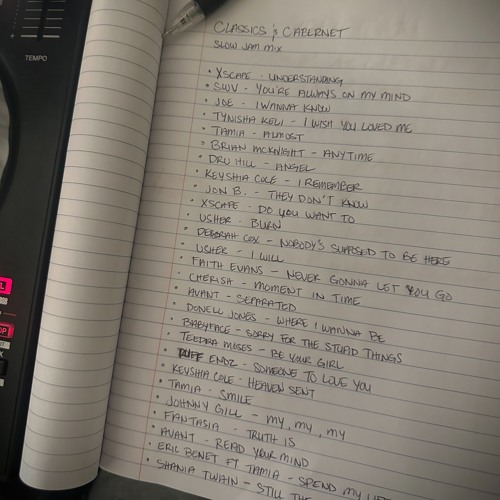 TEMPO
CLASSICS & CABERNET
SLOW JAM MIX
• XSCAPE - UNDERSTANDING
• SWV - YOU'RE ALWAYS ON MY MIND
• JOE - I WANNA KNOW
• TYNISHA KELI - I WISH YOU LOVED ME
• TAMIA - ALMOST
• BRIAN MCKNIGHT - ANYTIME
• DRU HILL - ANGEL
• KEYSHIA COLE - I REMEMBER
• JON B. - THEY DON'T KNOW
• XSCAPE - DO YOU WANT TO
• USHER - BURN
• DEBORAH COX - NOBODY'S SUPPOSED TO BE HERE
• USHER - I WILL
• FAITH EVANS - NEVER GONNA LET YOU GO
• CHERISH - MOMENT IN TIME
• AVANT - SEPARATED
• DONELL JONES - WHERE I WANNA BE
• BABYFACE - SORRY FOR THE STUPID THINGS
• TEEDRA MOSES - BE YOUR GIRL
• RUFF ENDZ - SOMEONE TO LOVE YOU
• KEYSHIA COLE - HEAVEN SENT
• TAMIA - SMILE
• JOHNNY GILL - MY, MY, MY
• FANTASIA - TRUTH IS
• AVANT - READ YOUR MIND
• ERIC BENET FT TAMIA - SPEND MY
• SHANIA TWAIN - STILL THE